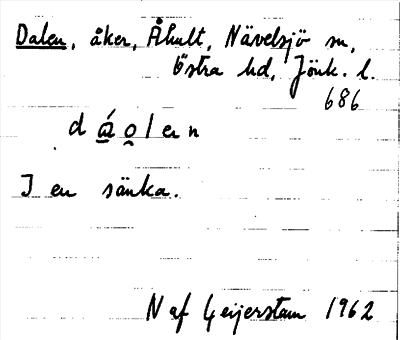 Dalen, åker, Åhult, Nävelsjö sn,
Östra hd, Jönk. l.
686
d á̱ o̱ l e n
I en sänka.
N af Geijerstam 1962